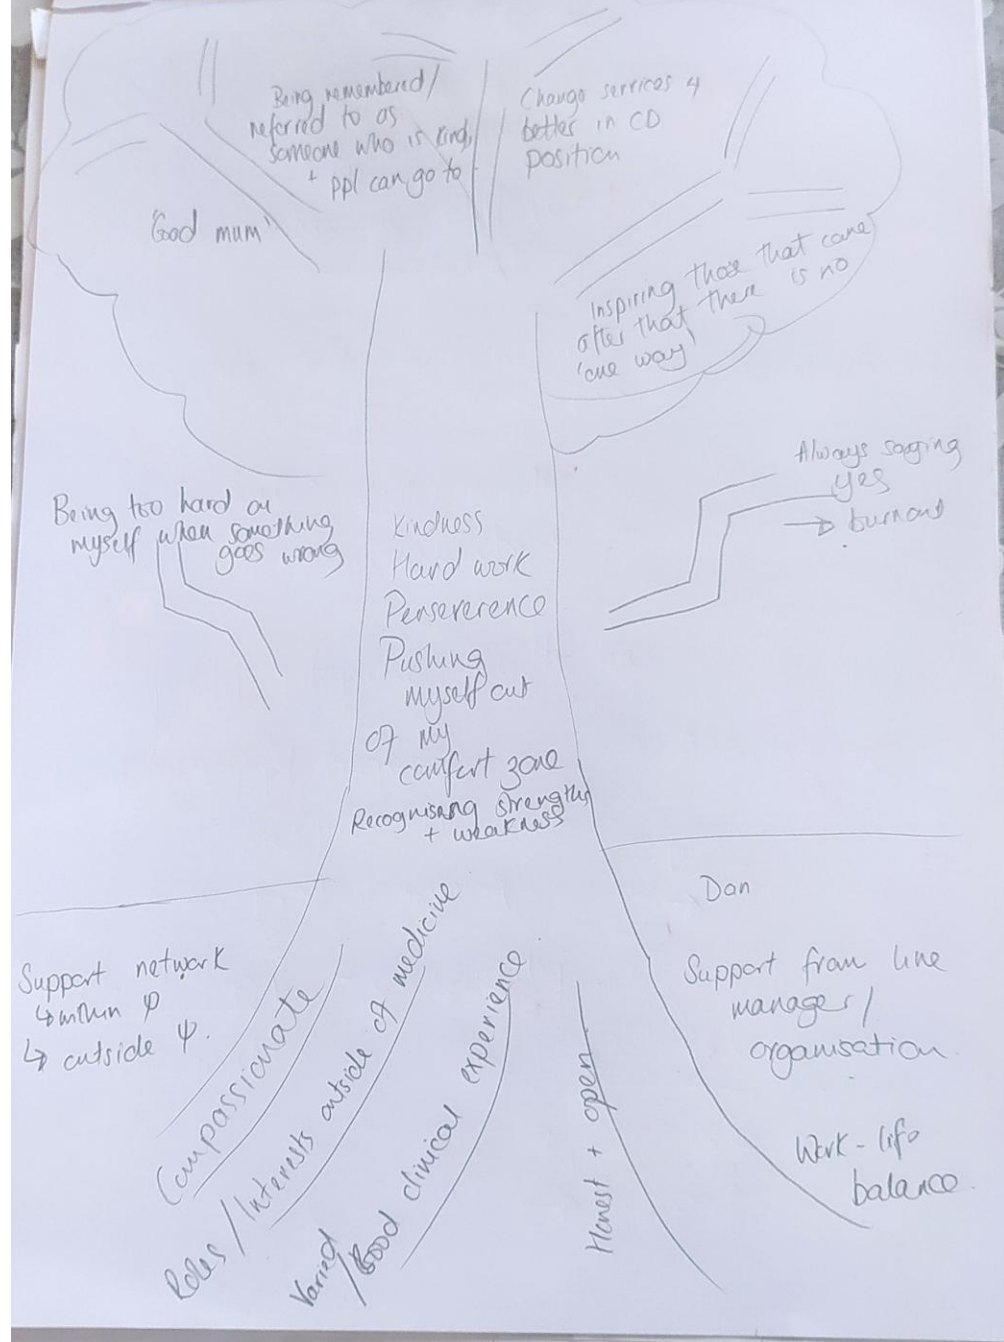 Being remembered/
referred to as
someone who is kind,
+ ppl can go to
Change services 4
better in CD
position
'Good mum'
Inspiring those that came
after that there is no
'one way'
Being too hard on
myself when something
goes wrong
Always saying
yes
→ burnout
Kindness
Hard work
Perseverence
Pushing
myself out
of my
comfort zone
Recognising strengths
+ weakness
Support network
↳ within ψ
↳ outside ψ.
Compassionate
Roles/Interests outside of medicine
Varied
/Good clinical experience
Honest + open
Dan
Support from line
manager/
organisation.
Work-life
balance.